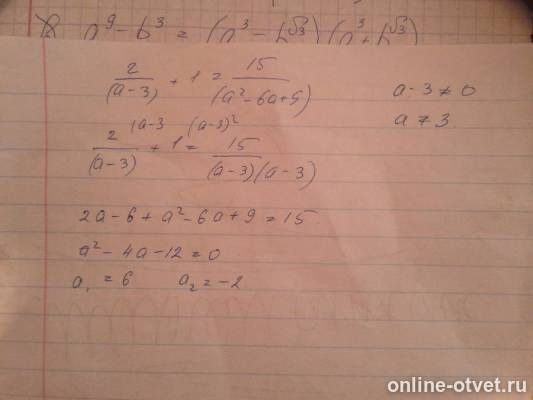 a⁹ - b³ = (a³ - b^√3)(a³ + b^√3)
2/(a-3) + 1 = 15/(a² - 6a + 9)
a - 3 ≠ 0
(a-3 (a-3)²
a ≠ 3.
2/(a-3) + 1 = 15/((a-3)(a-3))
2a - 6 + a² - 6a + 9 = 15
a² - 4a - 12 = 0
a₁ = 6 a₂ = -2
online-otvet.ru